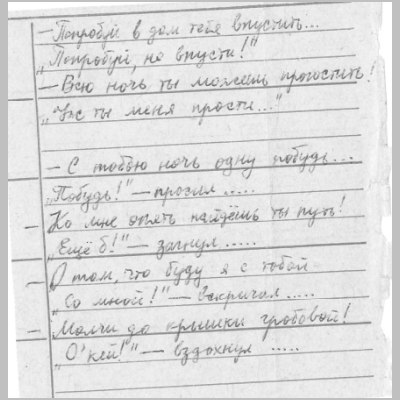 — Попробуй в дом тебя впустить...
„Попробуй, но впусти!"
— Всю ночь ты можешь прогостить!
„Уж ты меня прости..."
— С тобою ночь одну побудь...
„Побудь!" — просил .....
— Ко мне опять найдёшь ты путь!
„Ещё б!" — загнул .....
— О том, что буду я с тобой
„Со мной!" — вскричал .....
— Молчи до крышки гробовой!
„О'кей!" — вздохнул .....